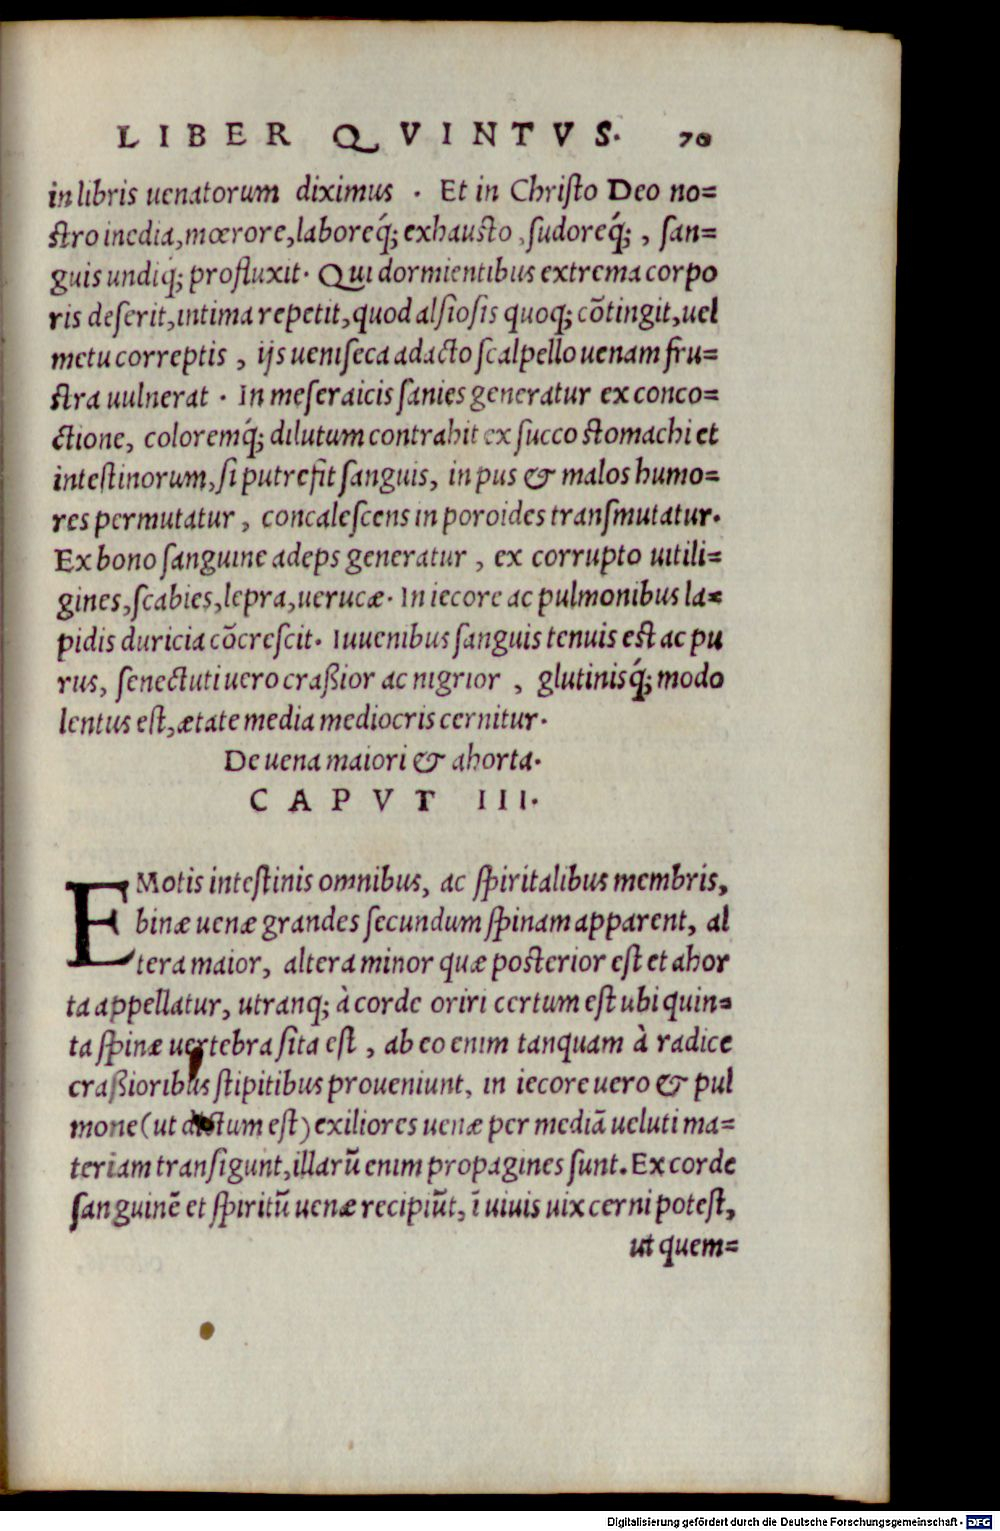 LIBER QVINTVS. 70
in libris uenatorum diximus . Et in Chriſto Deo no=
ſtro inedia, mœrore, laboreq́; exhauſto , ſudoreq́; , ſan=
guis undiq; profluxit. Qui dormientibus extrema corpo
ris deſerit, intima repetit, quod alſioſis quoq; cõtingit, uel
metu correptis , ijs ueniſeca adacto ſcalpello uenam fru=
ſtra uulnerat . In meſeraicis ſanies generatur ex conco=
ctione, coloremq́; dilutum contrahit ex ſucco ſtomachi et
inteſtinorum, ſi putrefit ſanguis, in pus & malos humo=
res permutatur , concaleſcens in poroides tranſmutatur.
Ex bono ſanguine adeps generatur , ex corrupto uitili=
gines, ſcabies, lepra, uerucæ. In iecore ac pulmonibus la=
pidis duricia cõcreſcit. Iuuenibus ſanguis tenuis eſt ac pu
rus, ſenectuti uero craßior ac nigrior , glutinisq́; modo
lentus eſt, ætate media mediocris cernitur.
De uena maiori & ahorta.
CAPVT III.
EMotis inteſtinis omnibus, ac ſpiritalibus membris,
binæ uenæ grandes ſecundum ſpinam apparent, al
tera maior, altera minor quæ poſterior eſt et ahor
ta appellatur, utranq; à corde oriri certum eſt ubi quin=
ta ſpinæ uertebra ſita eſt , ab eo enim tanquam à radice
craßioribus ſtipitibus proueniunt, in iecore uero & pul
mone (ut dictum eſt) exiliores uenæ per mediã ueluti ma=
teriam tranſigunt, illarũ enim propagines ſunt. Ex corde
ſanguinẽ et ſpiritũ uenæ recipiũt, ĩ uiuis uix cerni poteſt,
ut quem=
Digitalisierung gefördert durch die Deutsche Forschungsgemeinschaft - DFG